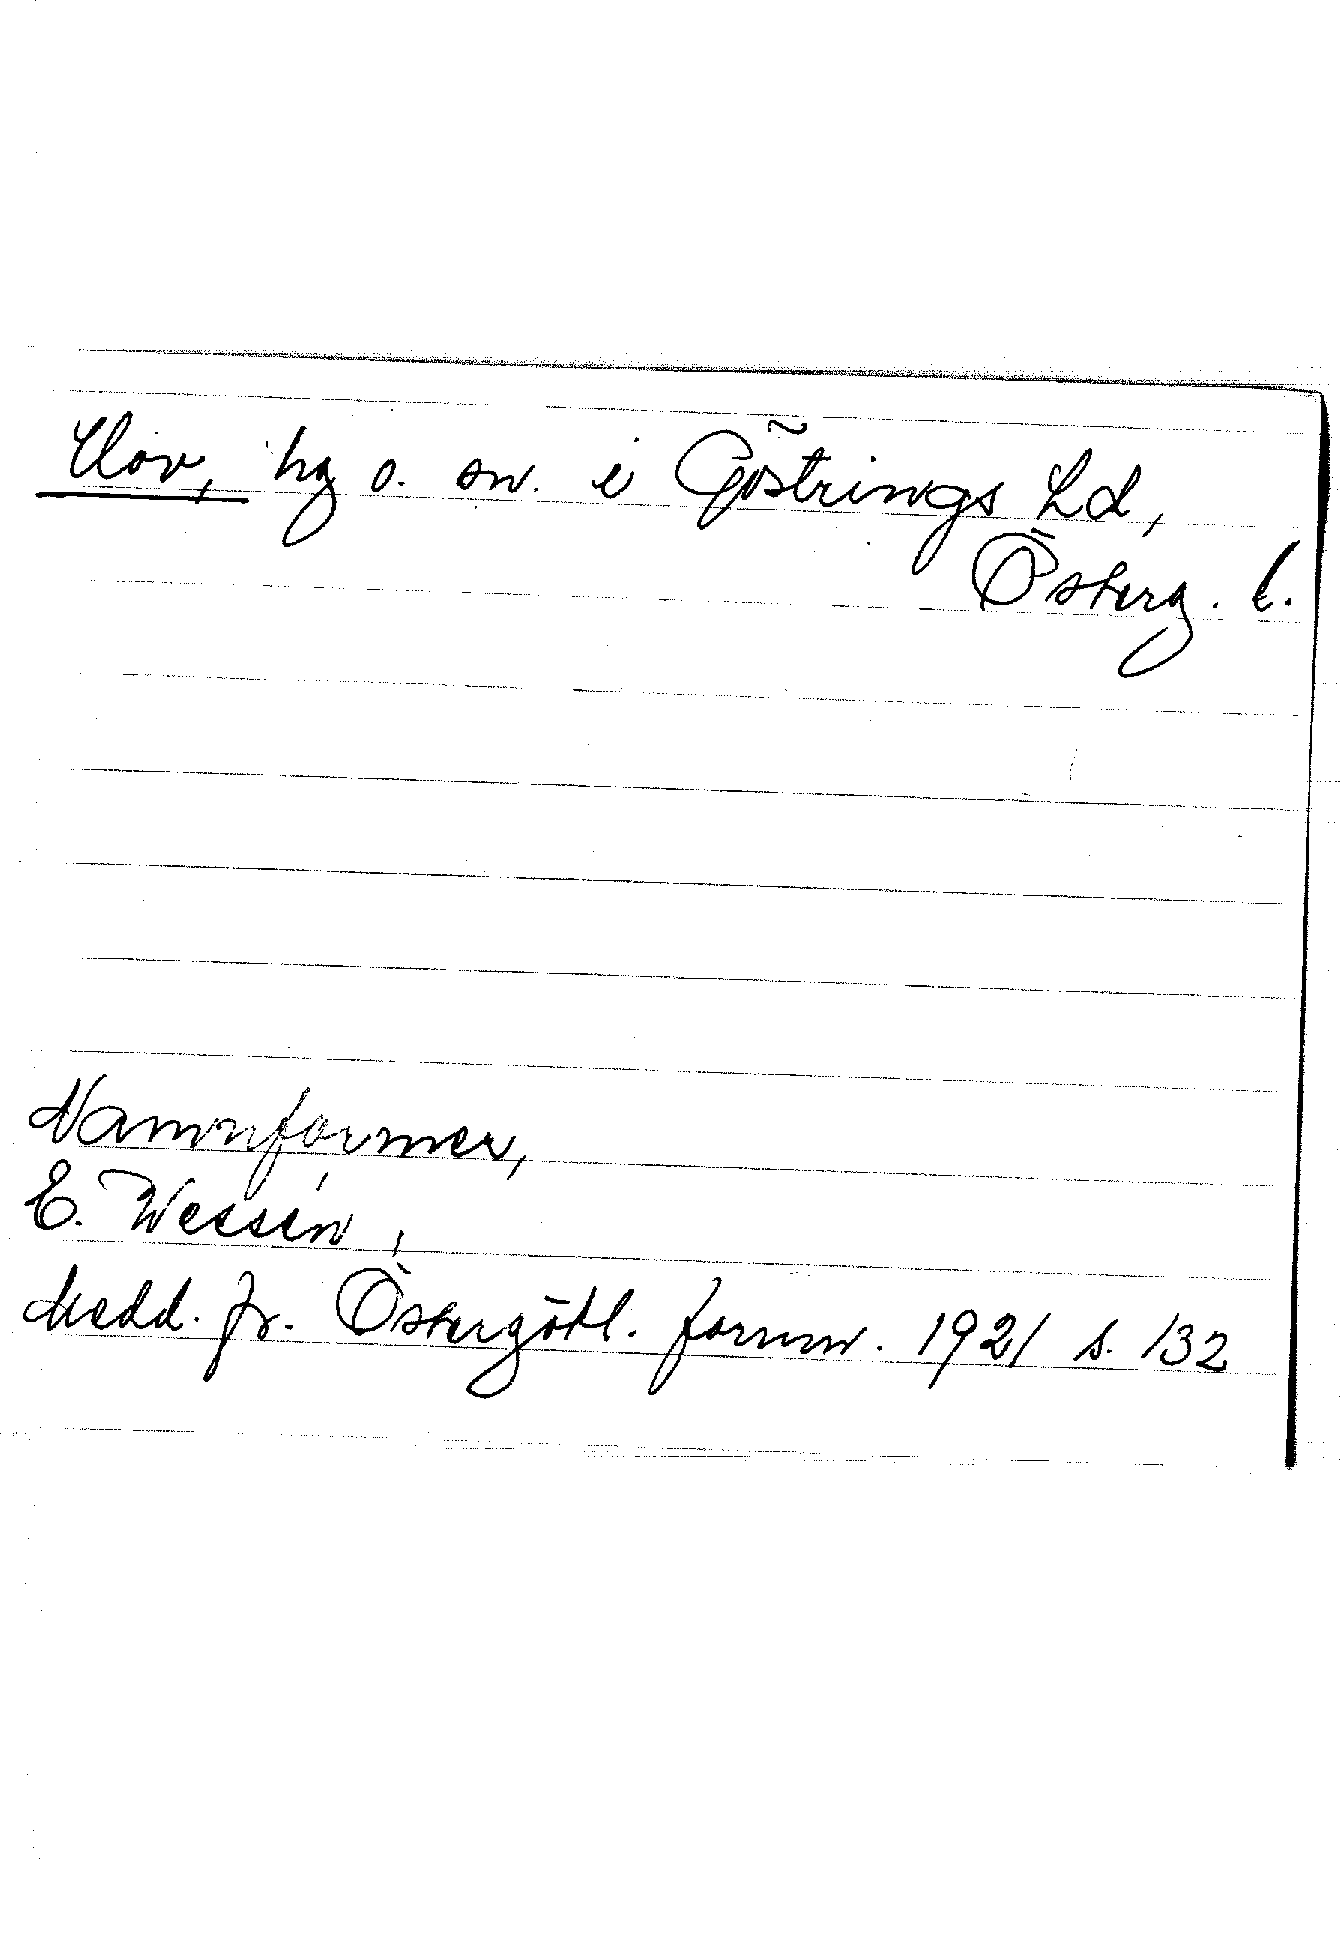 Hov, by o. sn. i Göstrings hd,
Österg. l.
Namnformer,
E. Wessén,
Medd. fr. Östergötl. fornm. 1921 s. 132